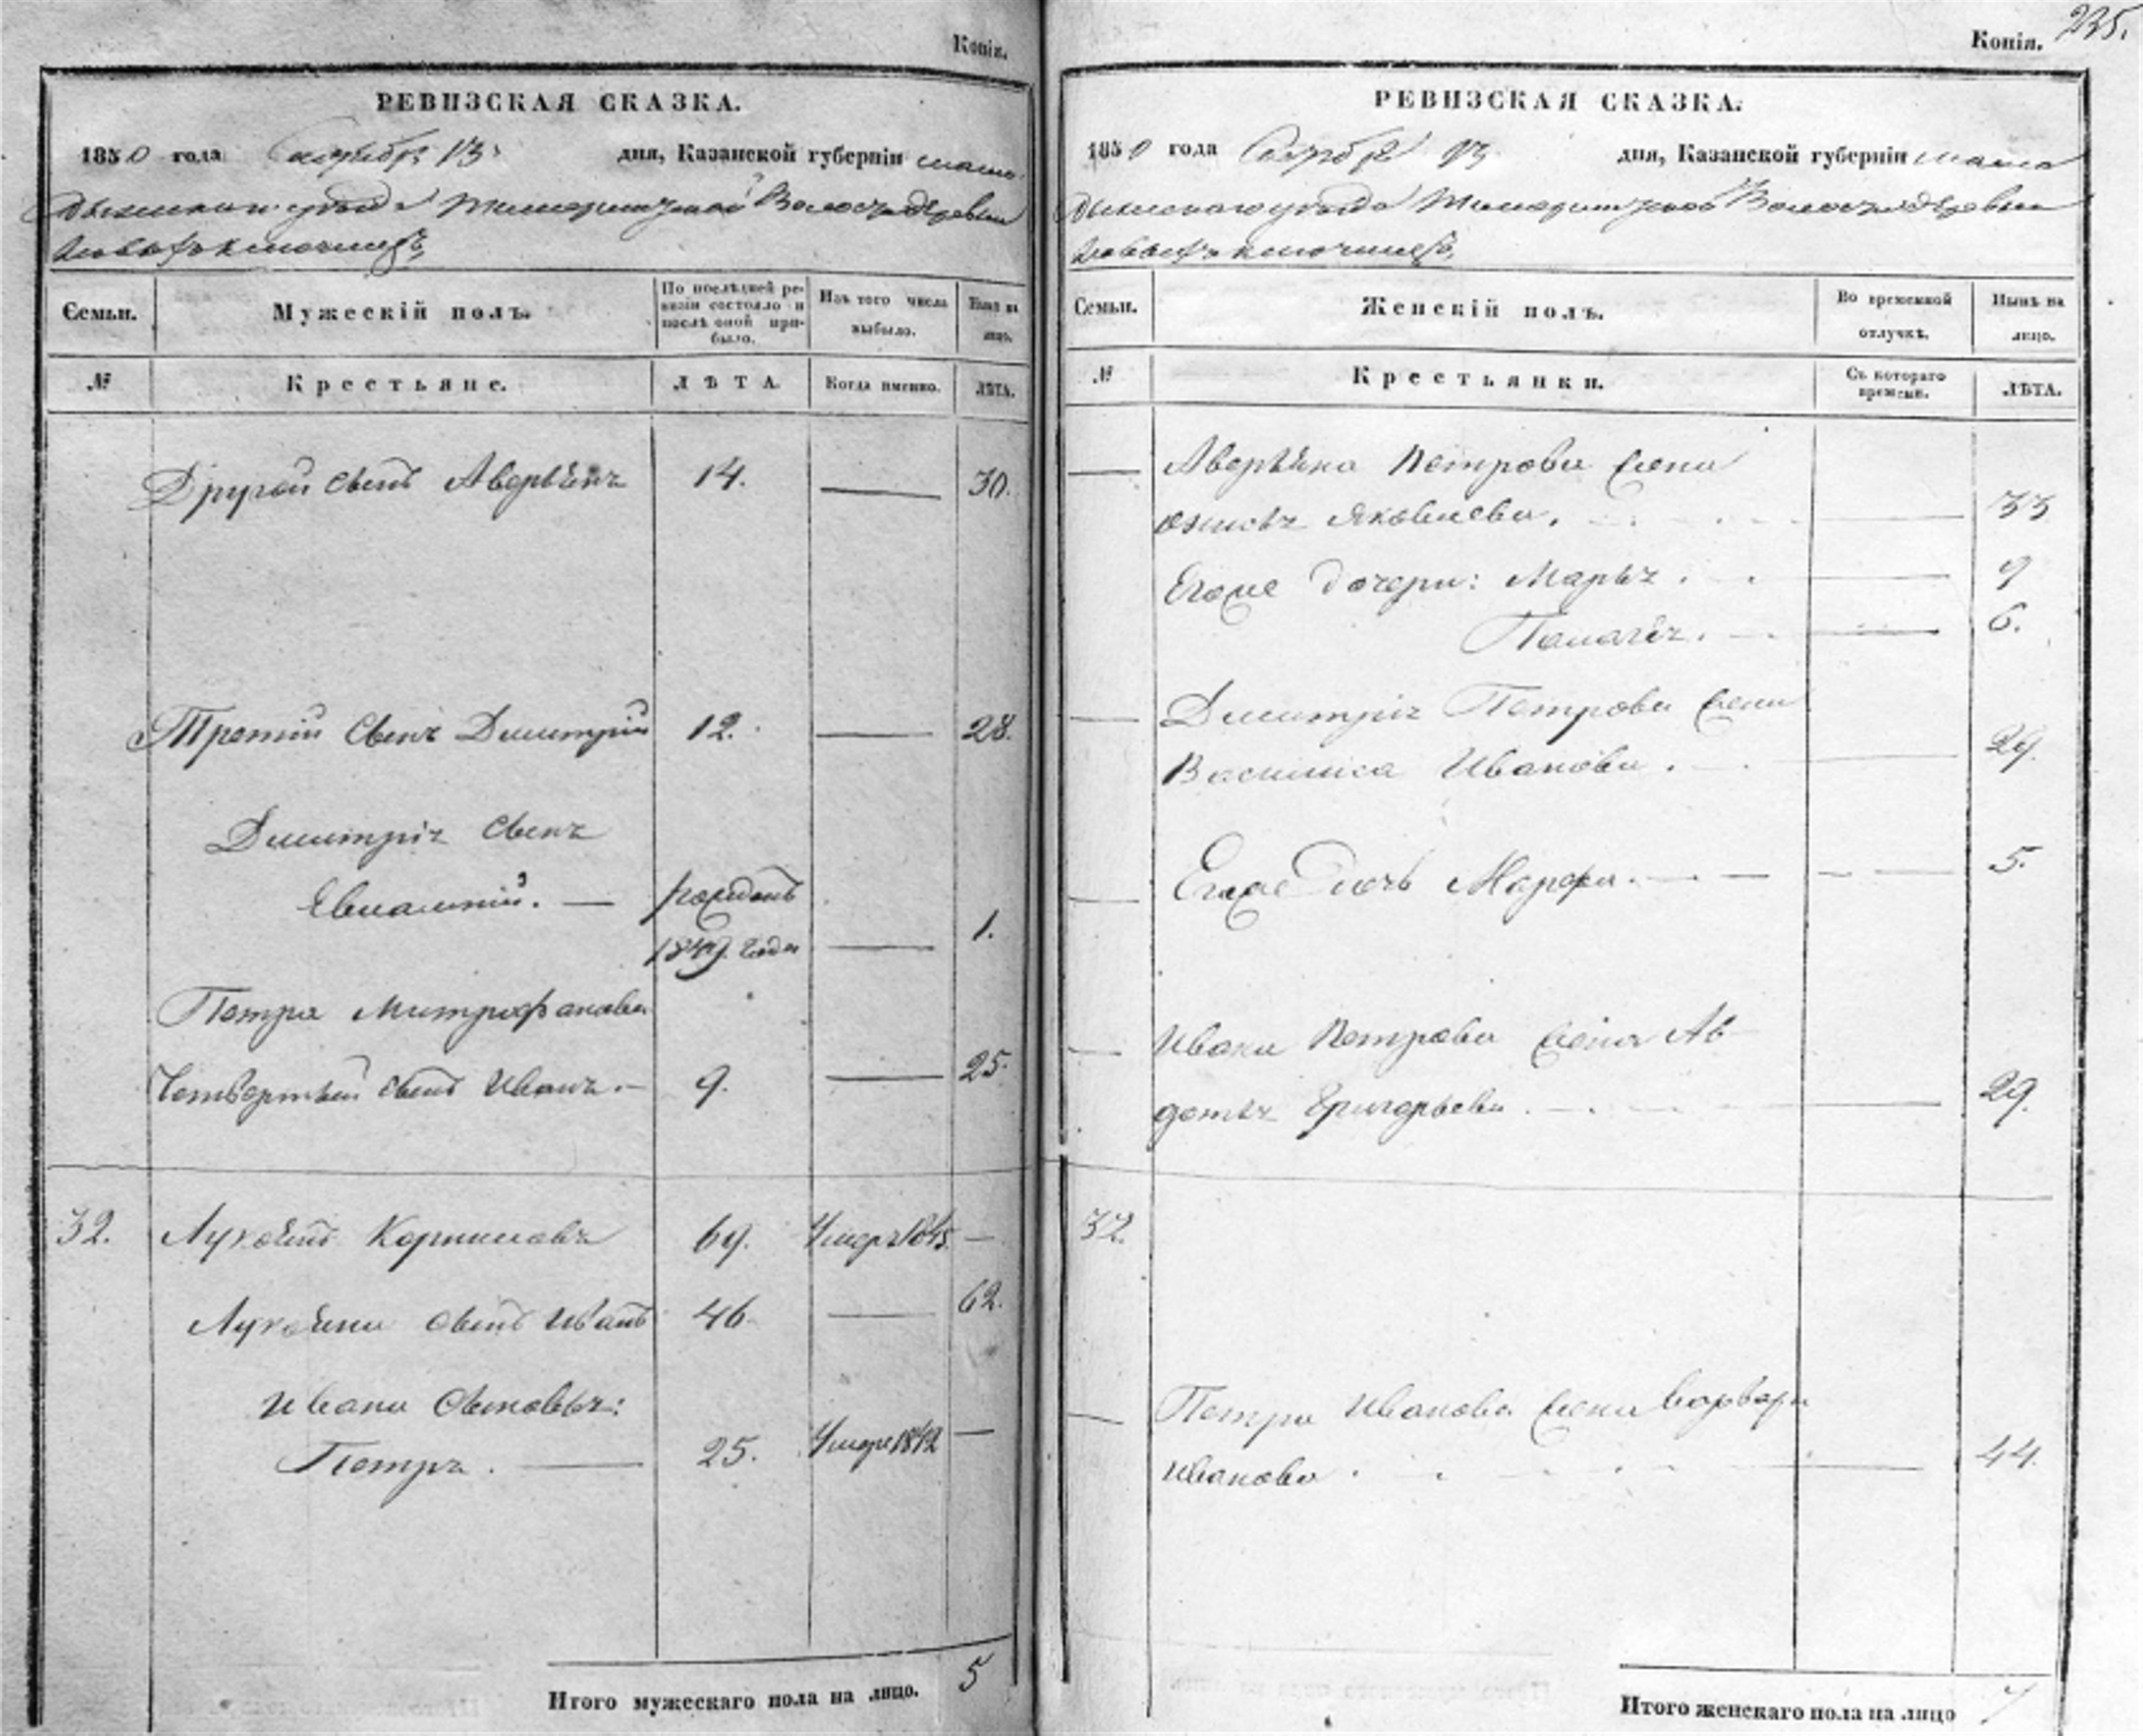 Копія.
РЕВИЗСКАЯ СКАЗКА.
1850 года Октября 13 дня, Казанской губерніи мама-
дышскаго уѣзда Волости деревни
Новыхъ
Семьи.
Мужескій полъ.
По послѣдней ре-
визіи состояло и
послѣ оной при-
было.
Изъ того числа
выбыло.
Нынѣ на
лицо.
№
Крестьяне.
ЛѢТА.
Когда именно.
ЛѢТА.
Другой сынъ Аверьянъ 14. — 30.
Третій сынъ Димитрій 12. — 28.
Димитрія сынъ
Евлампій. — рожденъ
1849. года — 1.
Петра Митрофанова
Четвертый сынъ Иванъ. — 9. — 25.
32. Лукоянъ Корниловъ 69. Умеръ 1845. —
Лукояна сынъ Иванъ 46 — 62.
Ивана сыновья:
Петръ. — 25. Умре 1842 —
Итого мужескаго пола на лицо. 5
235.
Копія.
РЕВИЗСКАЯ СКАЗКА.
1850 года Октября 13 дня, Казанской губерніи мама
дышскаго уѣзда Волости деревни
Новыхъ
Семьи.
Женскій полъ.
Во временной
отлучкѣ.
Нынѣ на
лицо.
№
Крестьянки.
Съ котораго
времени.
ЛѢТА.
— Аверьяна Петрова жена
Яковлева. — 33
Егоже дочери: Марья. — 9
Пелагея. — 6.
— Димитрія Петрова жена
Василиса Иванова. — 29.
— Егоже дочь Марфа. — 5.
— Ивана Петрова жена Ав-
дотья Григорьева. — 29.
32.
— Петра Иванова жена Варвара
Иванова. — 44.
Итого женскаго пола на лицо 7